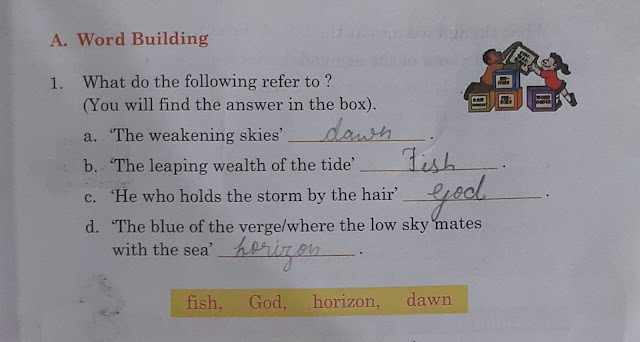 A. Word Building
1. What do the following refer to ?
(You will find the answer in the box).
a. ‘The weakening skies’ dawn .
b. ‘The leaping wealth of the tide’ Fish .
c. ‘He who holds the storm by the hair’ God .
d. ‘The blue of the verge/where the low sky mates
with the sea’ horizon .
fish, God, horizon, dawn